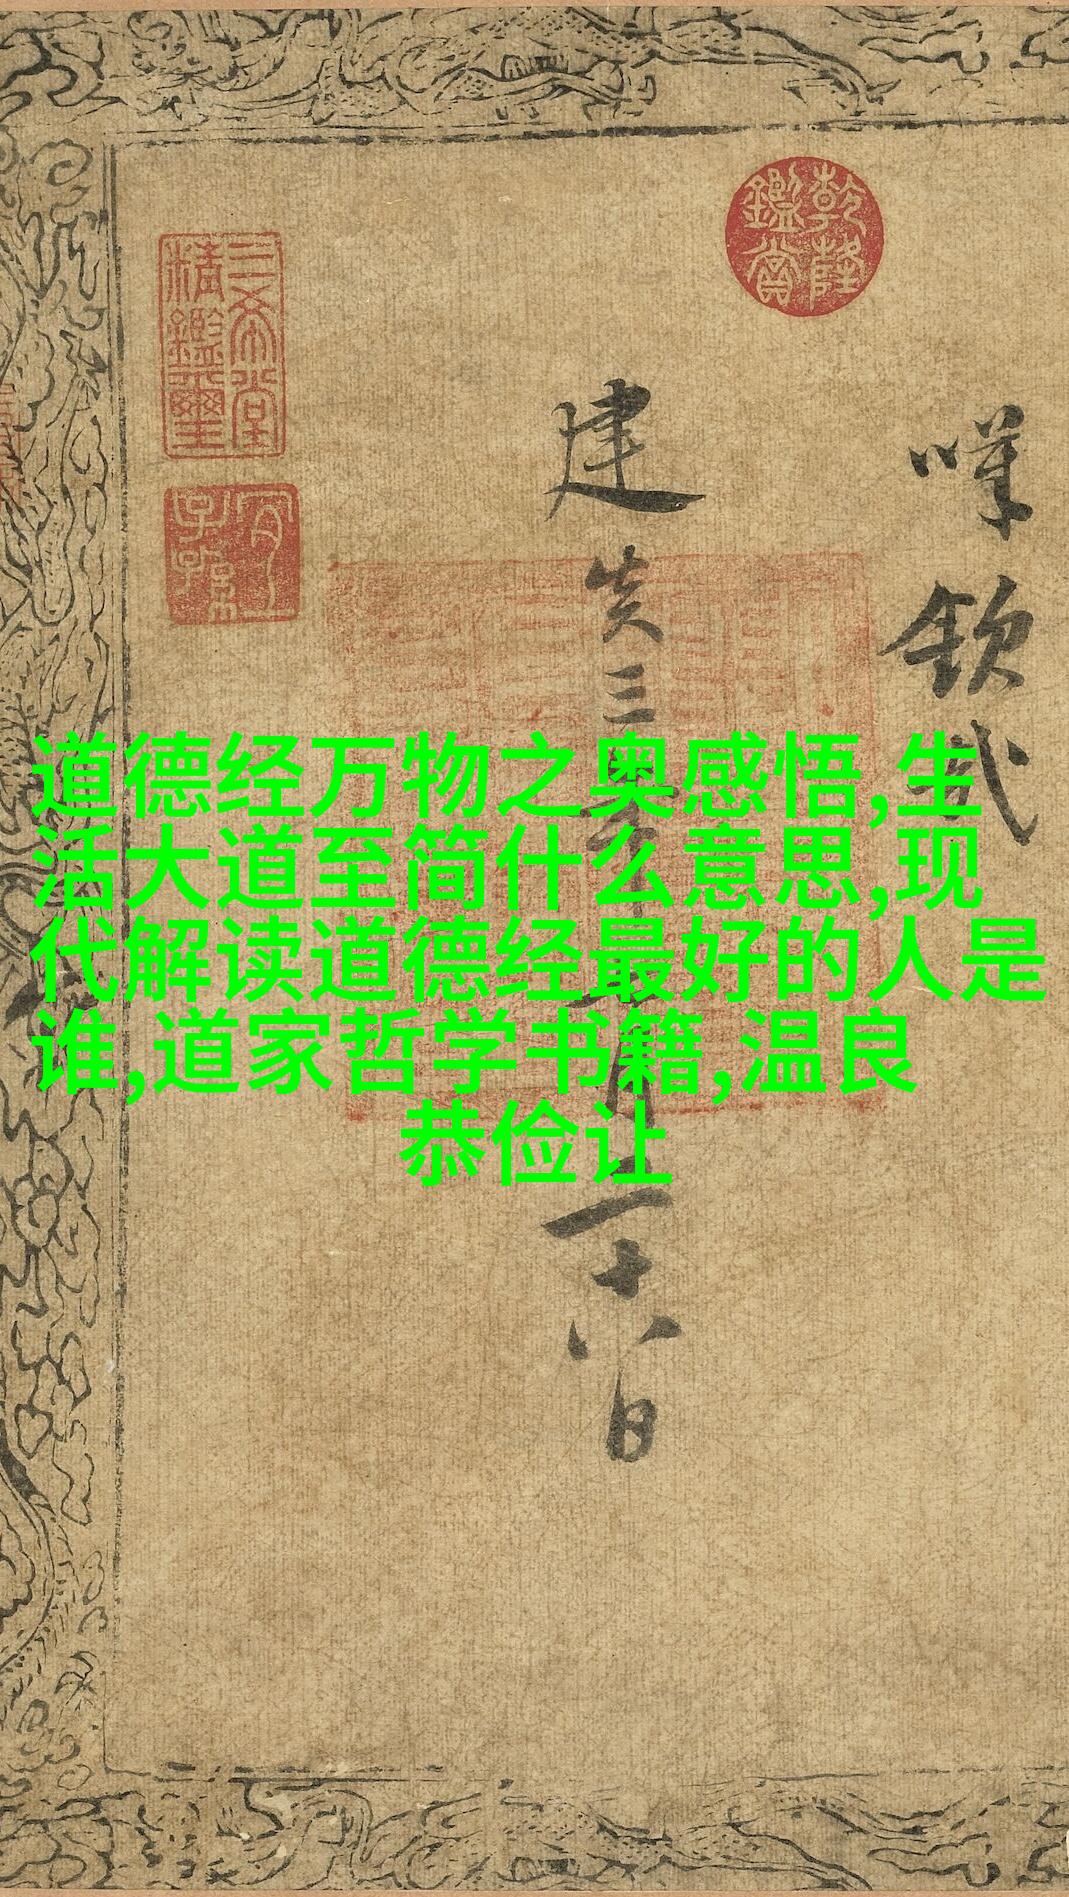 道德经万物之奥感悟,生
活大道至简什么意思,现
代解读道德经最好的人是
谁,道家哲学书籍,温良
恭俭让
乾隆鑑賞
欽
建炎三年
月二十八日
三希堂精鑑璽
宜子孫